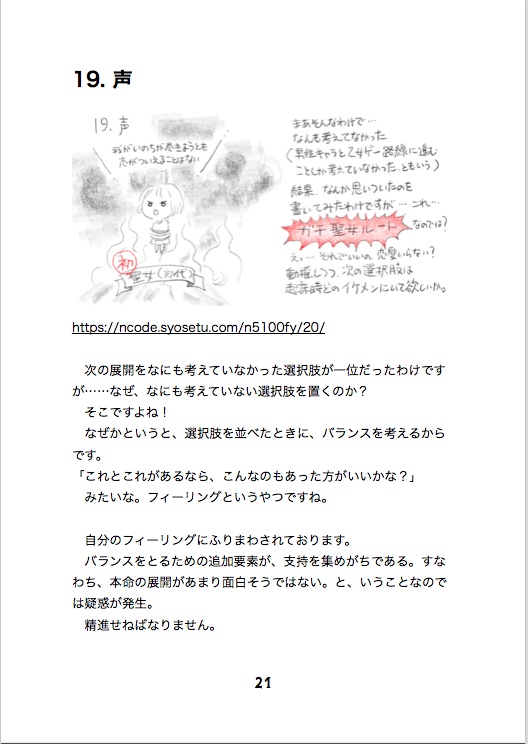 19. 声
19. 声
我がいのちが尽きようとも
志がついえることはない
初
聖女(初代)
まあそんなわけで…
なんも考えてなかった
(男性キャラと乙女ゲー路線に進む
ことしか考えていなかった、ともいう)
結果、なんか思いついたのを
書いてみたわけですが…これ…
ガチ聖女ルート なのでは?
えっ…それでいいの、恋愛いらない?
動揺しつつ、次の選択肢は
志萍時どのイケメンにいて欲しいか。
https://ncode.syosetu.com/n5100fy/20/
次の展開をなにも考えていなかった選択肢が一位だったわけです
が……なぜ、なにも考えていない選択肢を置くのか?
そこですよね!
なぜかというと、選択肢を並べたときに、バランスを考えるから
です。
「これとこれがあるなら、こんなのもあった方がいいかな?」
みたいな。フィーリングというやつですね。
自分のフィーリングにふりまわされております。
バランスをとるための追加要素が、支持を集めがちである。すな
わち、本命の展開があまり面白そうではない。と、いうことなので
は疑惑が発生。
精進せねばなりません。
21